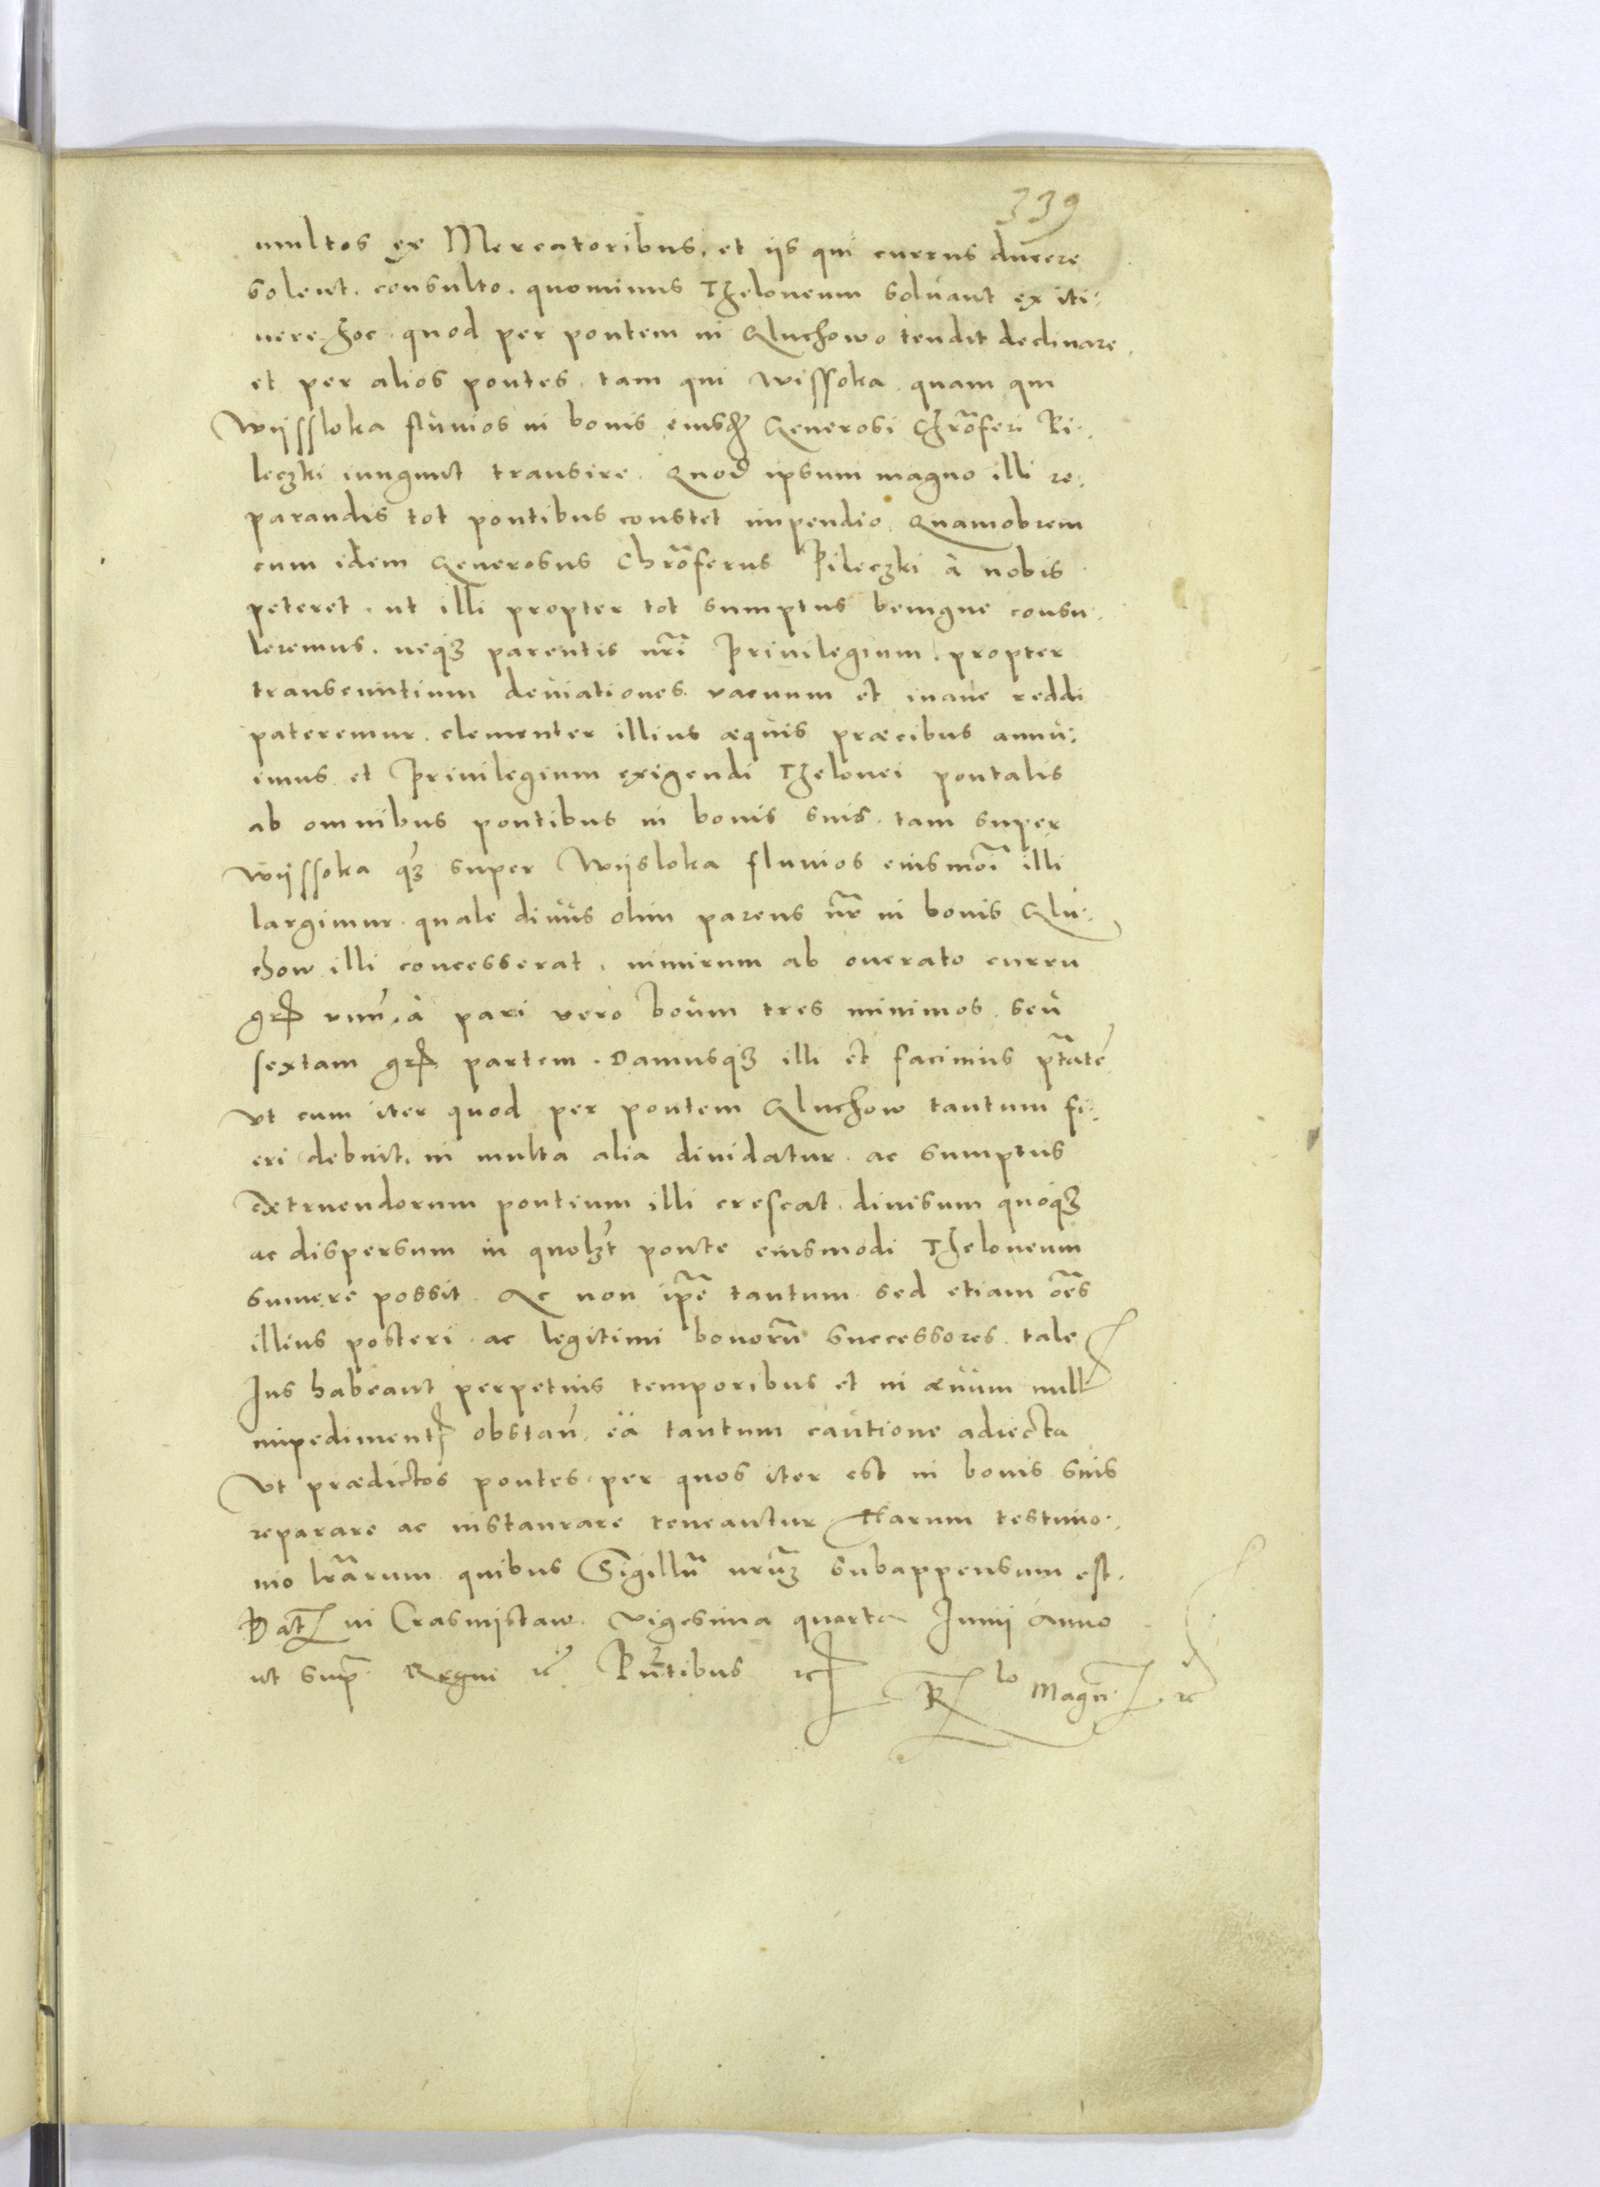 339
multos ex Mercatoribus, et ijs qui currus ducere
solent, consulto, quominus Theloneum solvant ex iti-
nere hoc, quod per pontem in Gluchowo tendit declinare,
et per alios pontes, tam qui Wissoka quam qui
Wijssloka fluvios in bonis eiusdem Generosi Chrõferi Pi-
leczki iungunt transire. Quod ipsum magno illi re-
parandis tot pontibus constet impendio. Quamobrem
cum idem Generosus Chrõferus Pileczki à nobis
peteret, ut illi propter tot sumptus benigne consu-
leremus, neqʒ parentis nr̃i Privilegium, propter
transeuntium deviationes vacuum et inane reddi
pateremur, clementer illius æquis præcibus annu-
imus, et Privilegium exigendi Thelonei pontalis
ab omnibus pontibus in bonis suis, tam super
Wijssoka qʒ super Wijsloka fluvios eiusmõi illi
largimur, quale divus olim parens nr̃ in bonis Glu-
chow illi concesserat, nimirum ab onerato curru
gr̃ unũ, à pari vero boum tres minimos, seu
sextam gr̃ partem. Damusqʒ illi et facimus ptãtẽ
Ut cum iter quod per pontem Gluchow tantum fi-
eri debuit, in multa alia dividatur, ac sumptus
extruendorum pontium illi crescat, divisum quoqʒ
ac dispersum in quolʒt ponte eiusmodi Theloneum
sumere possit. Ac non ip̃e tantum, sed etiam oẽs
illius posteri, ac legitimi bonorũ successores, tale
Ius habeant perpetuis temporibus et in ævum null
impediment obstañ, eä tantum cautione adiecta
Ut prædictos pontes, per quos iter est in bonis suis
reparare ac instaurare teneantur. Harum testimo-
nio lr̃arum quibus Sigillũ nrũʒ subappensum est.
Dat in Crasnistaw. vigesima quarta Iunii Anno
ut sup̃ Regni rc̃ Pñtibus rc̃
R lo Magñ rc